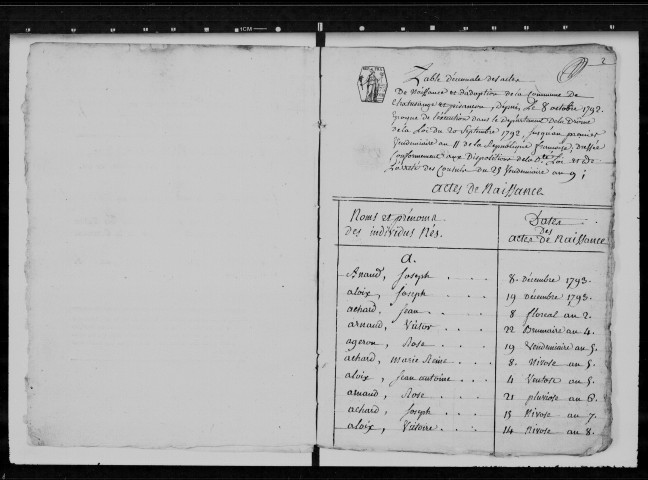 2
Table Décennale des actes
De Naissance et d'adoption de la Commune de
Chatusange et pisançon, Depuis Le 8 octobre 1792.
Epoque de l'exécution dans le département de la Drome
de la Loi du 20 Septembre 1792, jusqu'au premier
Vendemiaire an 11 de la République françoise, dressée
Conformement aux Dispositions de la Dte Loi et De
L'arrêté des Consuls du 25 Vendemiaire an 9;
actes de Naissance
Noms et prénoms
des individus Nés.
Dates
des
actes de Naissance
a.
Arnaud, Joseph . . . . 8. Décembre 1793.
aloix, Joseph . . . . 19 Décembre 1793.
achard, Jean . . . . 8 floreal an 2.
arnaud, Victor . . . 22 Brumaire an 4.
ageron, Rose . . . 19 Vendemiaire an 5.
achard, Marie Reine . . . 8. Nivose an 5.
aloix, Jean antoine . . . 4 Ventose an 5.
arnaud, Rose . . . 21 pluviose an 6.
achard, Joseph . . . 15 Nivose an 7.
aloix, Victoire . . . 14 Nivose an 8.
1CM